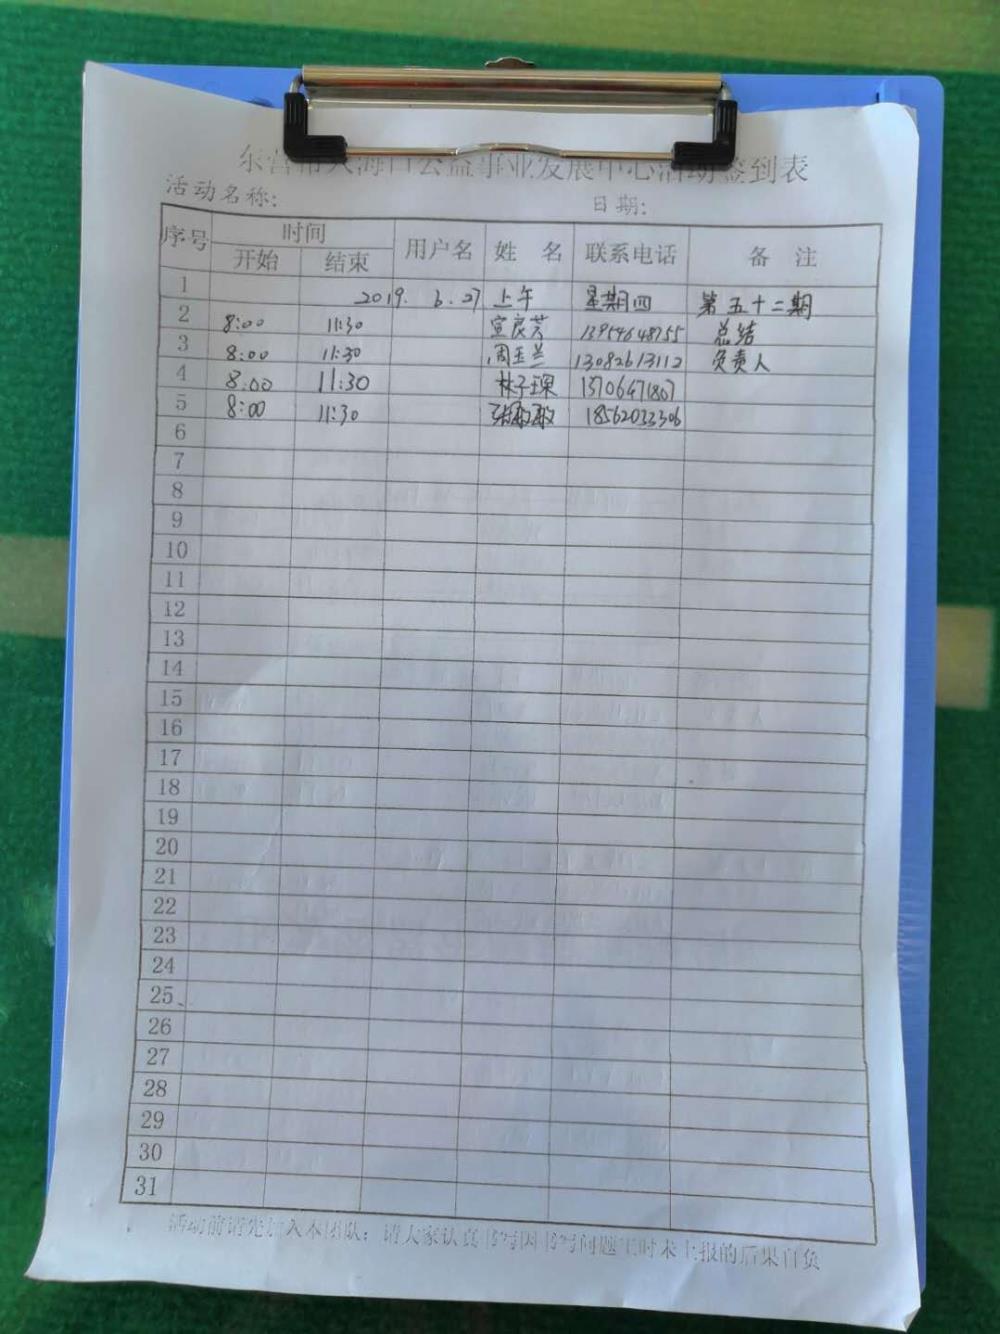 东营市大海口公益事业发展中心活动签到表
活动名称: 日期:
序号 时间 用户名 姓 名 联系电话 备 注
开始 结束
1 2019.6.27 上午 星期四 第五十二期
2 8:00 11:30 宣良芳 13954648755 总结
3 8:00 11:30 周玉兰 13082613112 负责人
4 8:00 11:30 林子琛 13706471807
5 8:00 11:30 张敏敏 18562033306
6
7
8
9
10
11
12
13
14
15
16
17
18
19
20
21
22
23
24
25
26
27
28
29
30
31
活动前请先加入本团队;请大家认真书写因书写问题工时未上报的后果自负